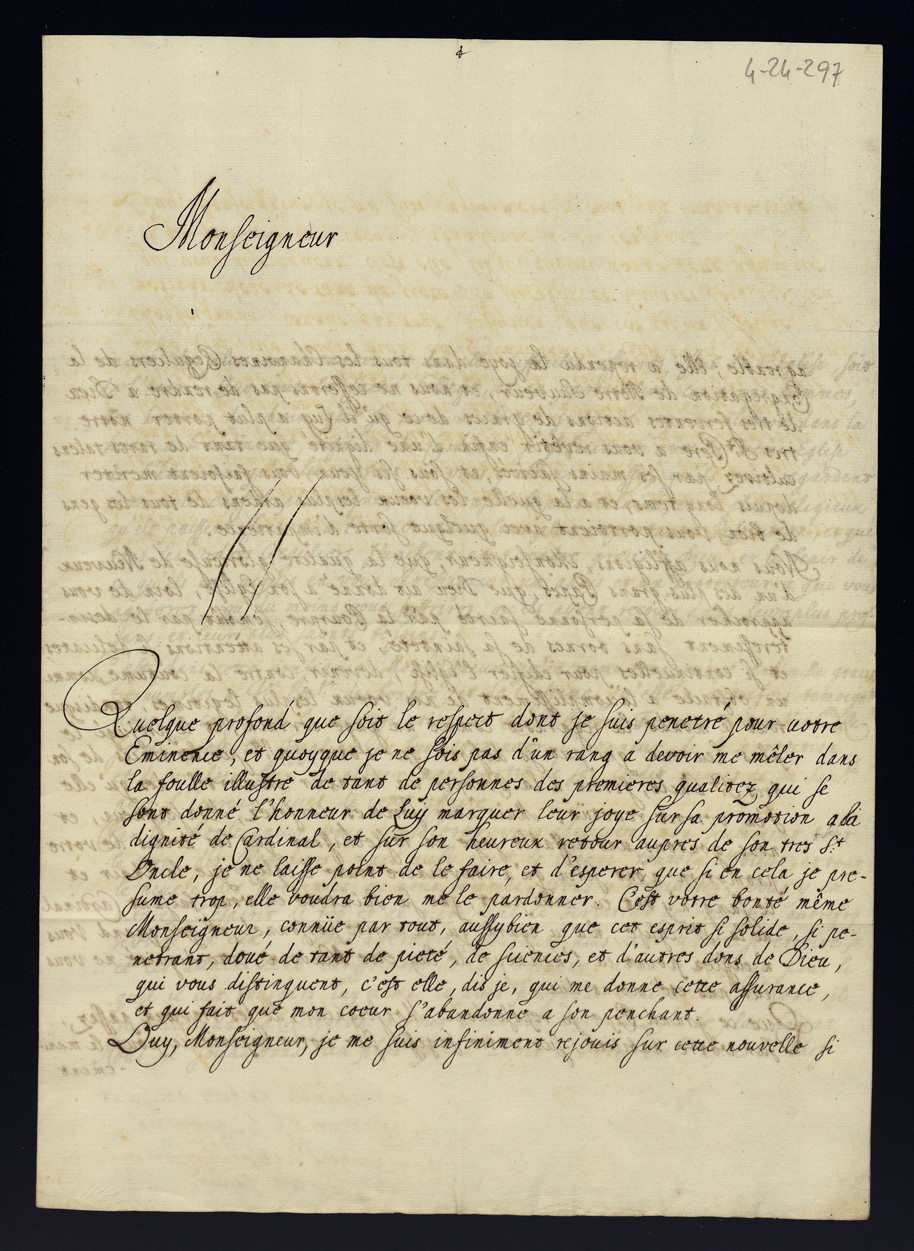 4-24-297
Monseigneur
Quelque profond que soit le respect dont je suis penetré pour votre
Eminence, et quoyque je ne sois pas d'un rang à devoir me mêler dans
la foulle illustre de tant de personnes des premieres qualitez qui se
sont donné l'honneur de Luy marquer leur joye sur sa promotion a la
dignité de Cardinal, et sur son heureux retour aupres de son tres St.
Oncle, je ne laisse point de le faire, et d'esperer, que si en cela je pre-
sume trop, elle voudra bien me le pardonner. C'est votre bonté même
Monseigneur, connüe par tout, aussybien que cet esprit si solide, si pe-
netrant, doué de tant de pieté, de sciences, et d'autres dons de Dieu,
qui vous distinguent, c'est elle, dis je, qui me donne cette assurance,
et qui fait que mon coeur s'abandonne a son penchant.
Ouy, Monseigneur, je me suis infiniment rejouis sur cette nouvelle si